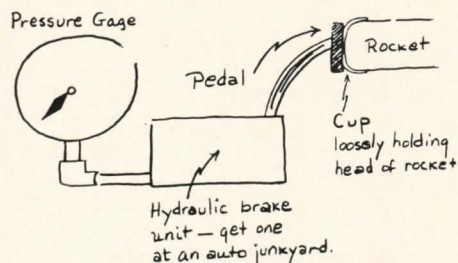 Pressure Gage
Pedal
Rocket
Cup
loosely holding
head of rocket
Hydraulic brake
unit — get one
at an auto junkyard.